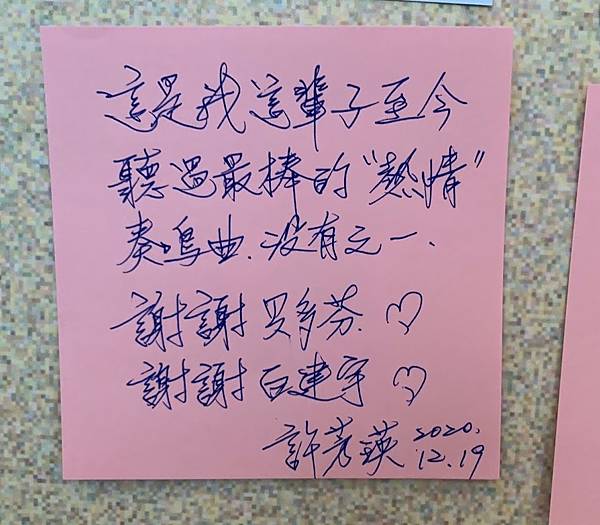 這是我這輩子至今
聽過最棒的"熱情"
奏鳴曲.沒有之一.
謝謝 貝多芬.♡
謝謝 白建宇 ♡
許芳瑛 2020.
12.19